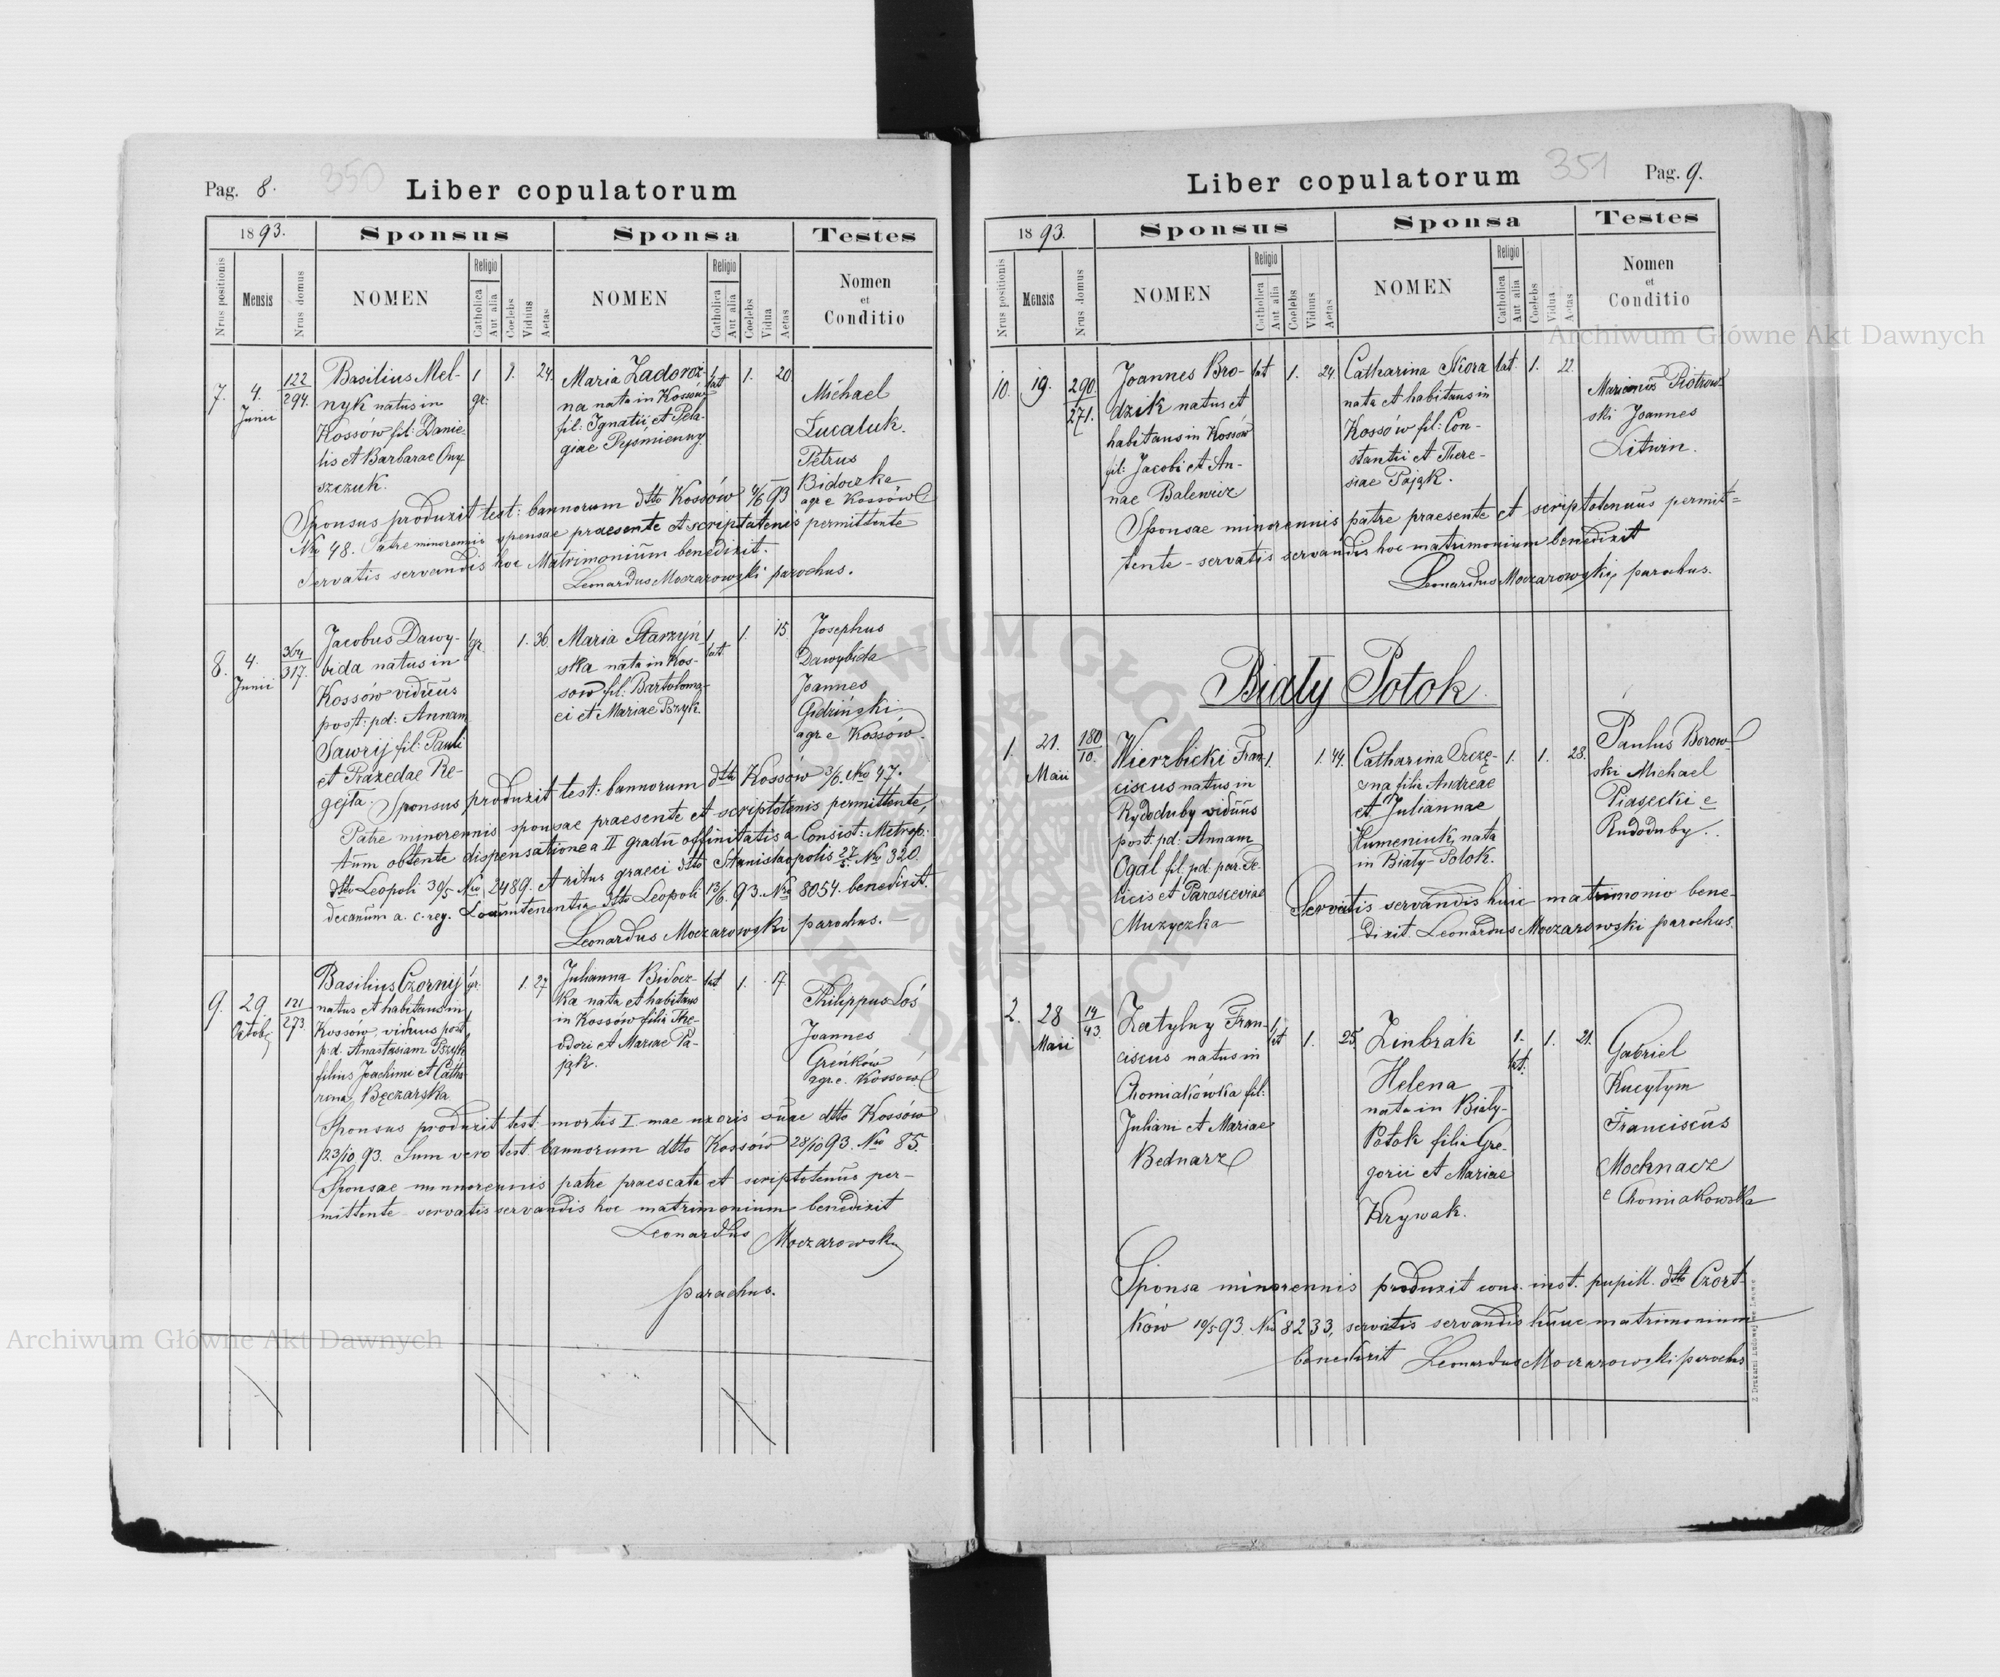 Pag. 8.
350
Liber copulatorum
1893.
Sponsus
Sponsa
Testes
Nrus positionis
Mensis
Nrus domus
NOMEN
Religio
Catholica
Aut alia
Coelebs
Viduus
Aetas
NOMEN
Religio
Catholica
Aut alia
Coelebs
Vidua
Aetas
Nomen
et
Conditio
7.
4.
Junii
122
294.
Basilius Mel-
nyk natus in
Kossów fil: Danie-
lis et Barbarae Ony
szczuk.
1
gr.
1.
24.
Maria Zadoroż
na nata in Kossów
fil: Ignatii et Pela-
giae Pyśmienny
1
lat
1.
20
Michael
Lucaluk.
Petrus
Bidoczka
agr e Kossów
Sponsus produxit test: bannorum dtto Kossów 4/6 93
Nro 48. Patre minorennis sponsae praesente et scriptotenis permittente
servatis servandis hoc Matrimonium benedixit.
Leonardus Moczarowski parochus.
8.
4.
Junii
364
317.
Jacobus Dawy-
bida natus in
Kossów viduus
post: pd: Annam
Sawrij fil: Pauli
et Praxedae Re-
gejta.
1
gr.
1.
36.
Maria Starzyń
ska nata in Kos-
sów fil: Bartoloma-
ei et Mariae Pszyk.
1
lat
1.
15.
Josephus
Dawybida
Joannes
Gidziński
agr e Kossów.
Sponsus produxit test: bannorum dtto Kossów 3/6. Nro 47.
Patre minorennis sponsae praesente et scriptotenis permittente,
tum obtente dispensatione a II gradu affinitatis a Consist: Metrop:
dtto Leopoli 30/5 Nro 2489. et ritus graeci dtto Stanislaopolis 27/5 Nro 320.
decanum a c. reg. Locumtenentia dtto Leopoli 13/6. 93. Nro 8054. benedixit.
Leonardus Moczarowski parochus.
9.
29.
Octob.
121
273.
Basilius Czornij
natus et habitans in
Kossów, viduus post
p.d. Anastasiam Pszyk
filius Joachimi et Catha
rina Bęczarska
gr.
1.
27
Julianna Bidocz-
ka nata et habitans
in Kossów filia The-
odori et Mariae Pa-
jąk.
lat
1.
17.
Philippus Łoś
Joannes
Greńków
agr.e. Kossów
Sponsus produxit test: mortis I. mae uxoris suae dtto Kossów
123/10 93. Tum vero test. bannorum dtto Kossów 28/10 93. Nro 85.
Sponsae minorennis patre praesente et scriptotenus per-
mittente servatis servandis hoc matrimonium benedixit
Leonardus Moczarowski
parochus.
351
Pag. 9.
Liber copulatorum
1893.
Sponsus
Sponsa
Testes
Nrus positionis
Mensis
Nrus domus
NOMEN
Religio
Catholica
Aut alia
Coelebs
Viduus
Aetas
NOMEN
Religio
Catholica
Aut alia
Coelebs
Vidua
Aetas
Nomen
et
Conditio
10.
19.
290.
271.
Joannes Bro-
dzik natus et
habitans in Kossów
fil: Jacobi et An-
nae Balewicz
lat
1.
24.
Catharina Skora
nata et habitans in
Kossów fil: Con-
stantii et There-
siae Pająk.
lat.
1.
22.
Marianus Piotrow-
ski Joannes
Litwin.
Sponsae minorennis patre praesente et scriptotenus permit=
tente - servatis servandis hoc matrimonium benedixit
Leonardus Moczarowski, parochus.
Biały Potok.
1.
21.
Maii
180
10.
Wierzbicki Fran-
ciscus natus in
Rydoduby viduus
post. pd. Annam
Ogal fil. pd. par. Fe-
licis et Parasceviae
Muzyczka
1.
1.
44.
Catharina Szczę-
sna filia Andreae
et Juliannae
Humeniuk, nata
in Biały-Potok.
1.
1.
28.
Paulus Borow-
ski Michael
Piasecki e
Rudoduby.
Servatis servandis huic matrimonio bene-
dixit. Leonardus Moczarowski parochus.
2.
28
Maii
14
43.
Zatylny Fran-
ciscus natus in
Chomiakówka fil:
Juliani et Mariae
Bednarz
1
lat
1.
25.
Zinbrak
Helena
nata in Biały-
Potok filia Gre-
gorii et Mariae
Krywak.
1.
lat.
1.
21.
Gabriel
Kucytym
Franciscus
Mochnacz
e Chomiakowska
Sponsa minorennis produxit cons. inst. pupill. dtto Czort-
ków 10/5 93. Nro 8233, servatis servandis hunc matrimonium
benedixit Leonardus Moczarowski parochus
Z Drukarni Ludowej we Lwowie
Archiwum Główne Akt Dawnych
Archiwum Główne Akt Dawnych